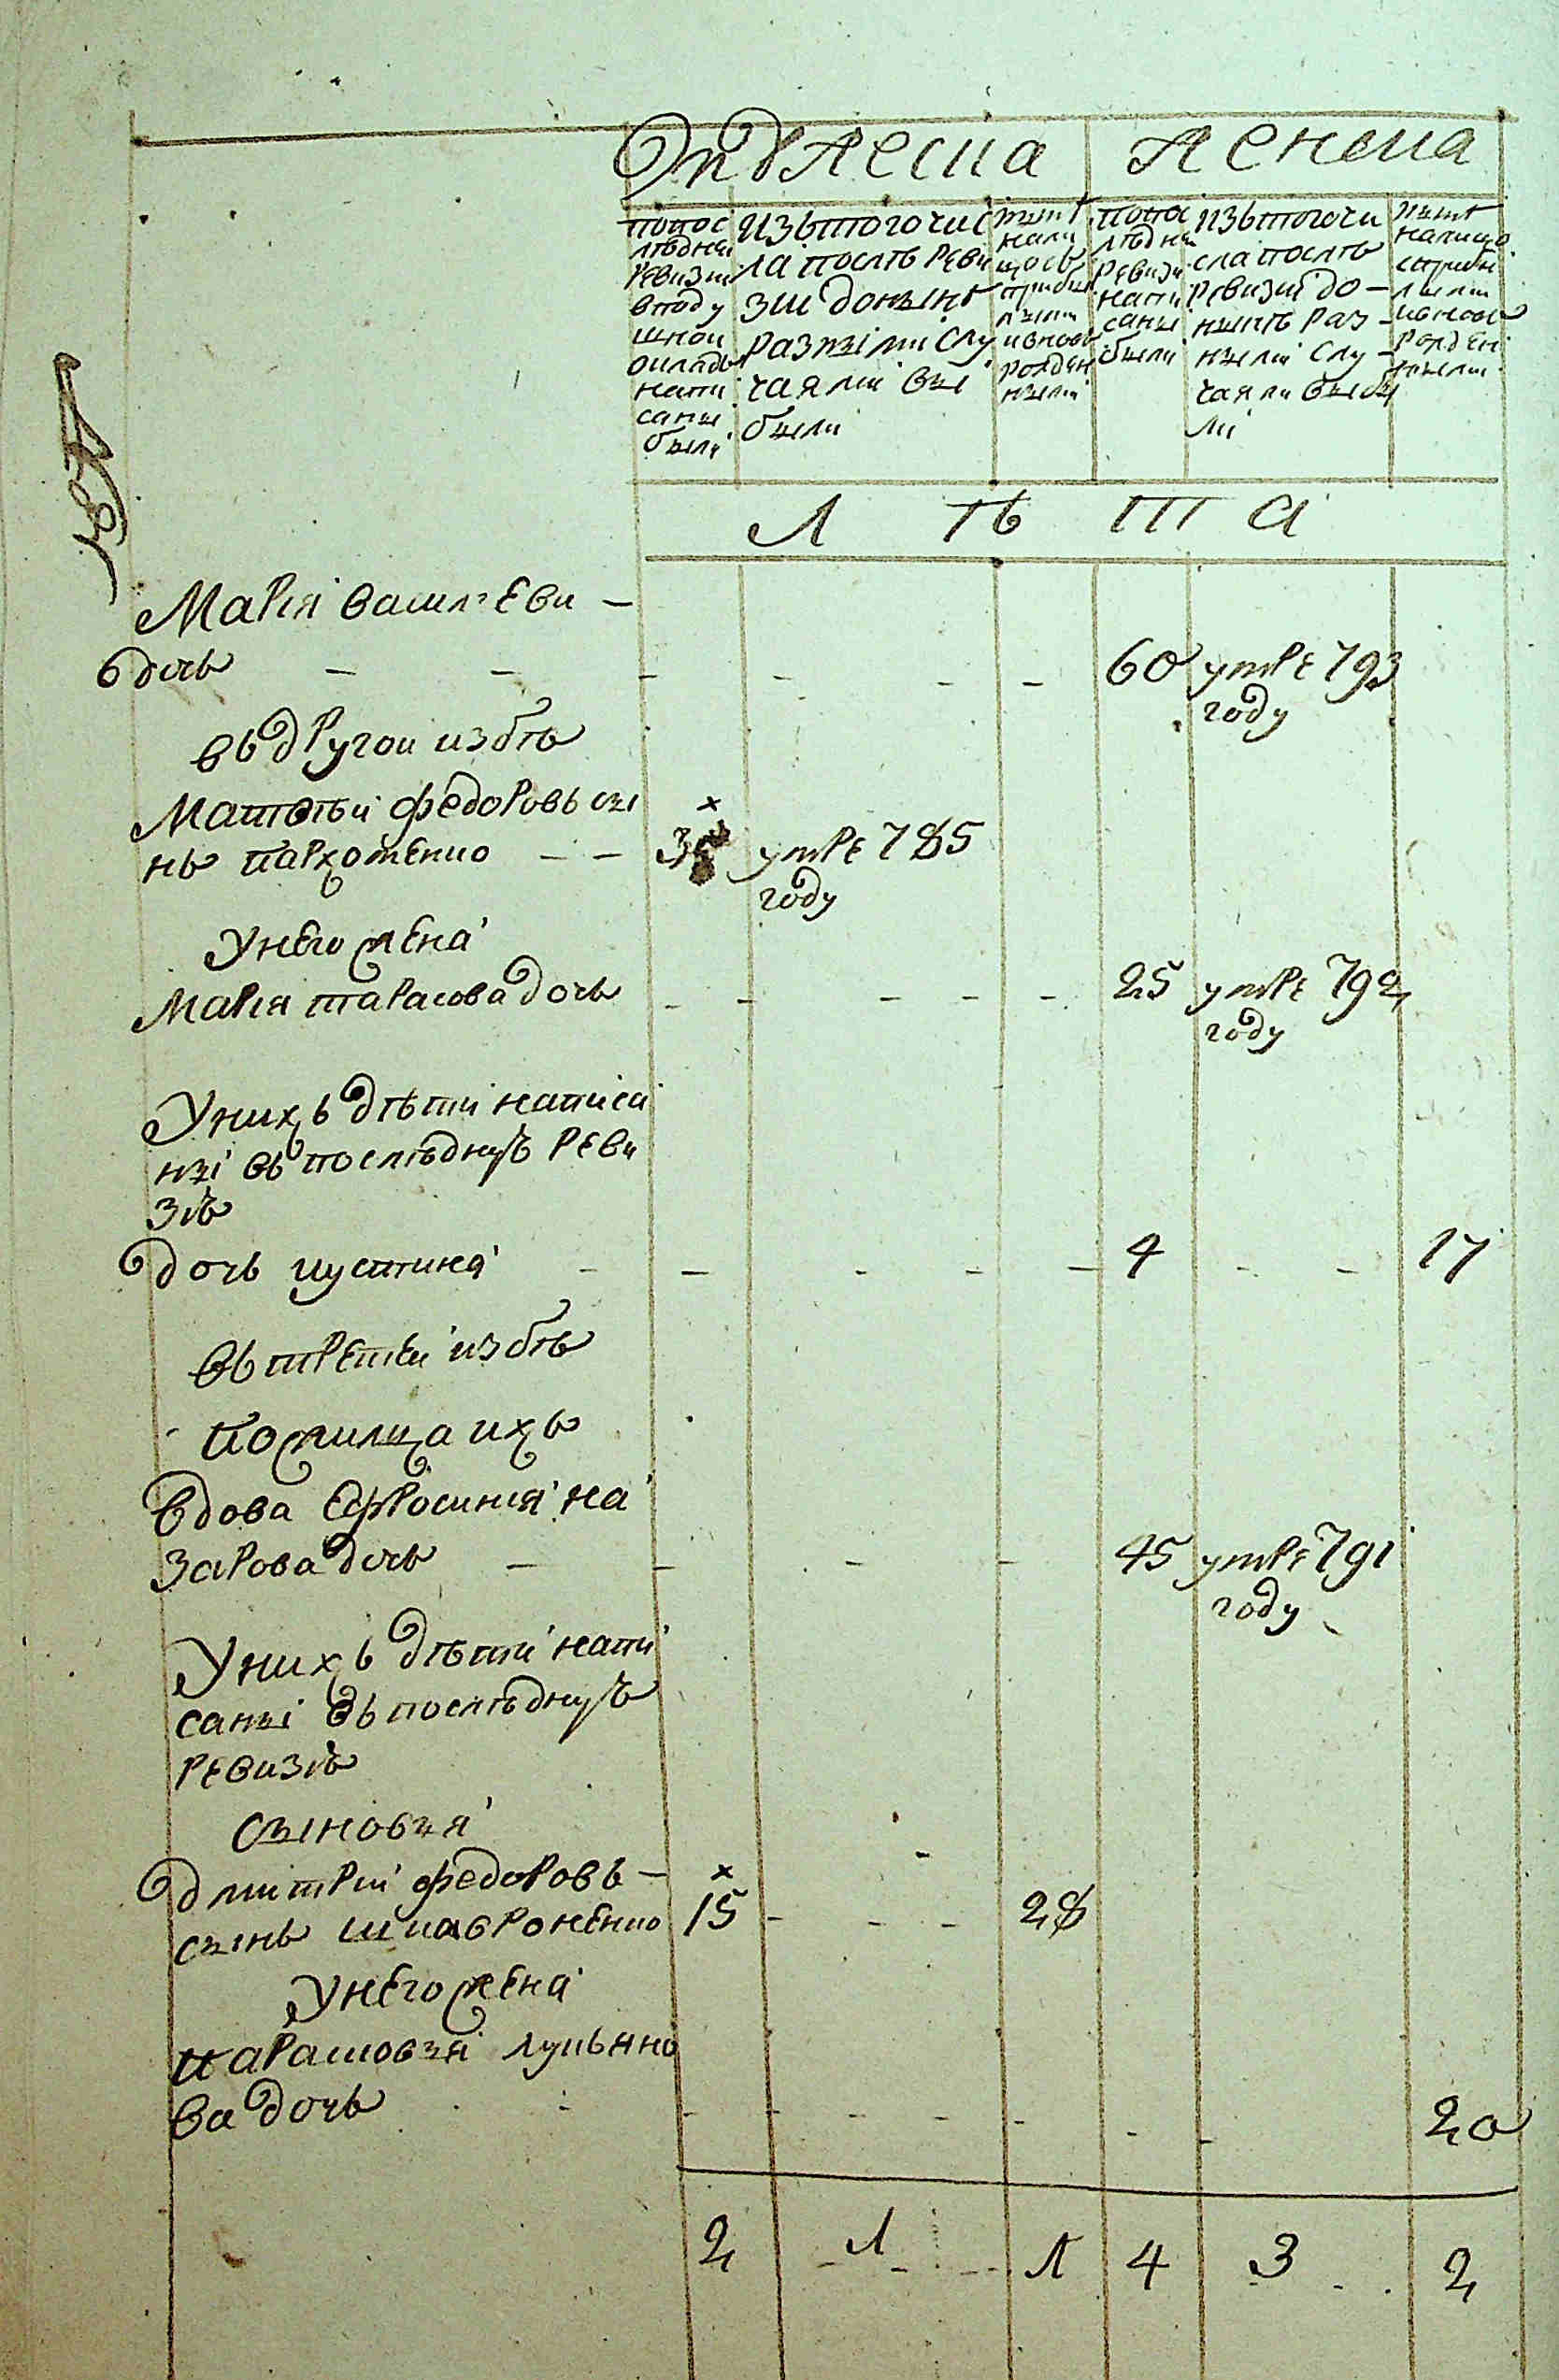 Мужеска
женска
по пос
лѣдней
ревизіи
в поду
шной
окладъ
напи
саны
были
изътого чис
ла послѣ реви
зіи донынѣ
разными слу
чаями вы
были
нынѣ
нали
цосъ
прибы
лыми
ивновь
рожден
ными
по по
лѣдне
ревизи
напи
саны
были
изътого чи
сла послѣ
ревизіи до-
нынѣ раз-
ными слу-
чаями выбы
ли
нынѣ
налицо
сприбы
лыми
ивновь
рожден
ными
Л ѣ т а
Марія василʼеви -
дочь 60 умре 793
году
въ другои избѣ
Матвѣй федоровъ сы
нъ пархоменко умре 785
году
Унего жена
Марія тарасова дочь 25 умре 792
году
Унихъ дѣти написа
ны въ послѣднуъ реви
зіъ
дочь иустина 4 17
въ третеи избѣ
пожилца ихъ
вдова Ефросинія на
зарова дочь 45 умре 791
году
Унихъ дѣти напи
саны въ послѣднуъ
ревизіъ
сыновья
Дмитріи федоровъ -
сынъ шкавроненко 15 28
Унего жена
парасковья лукьяно
ва дочь 20
2 1 1 4 3 2